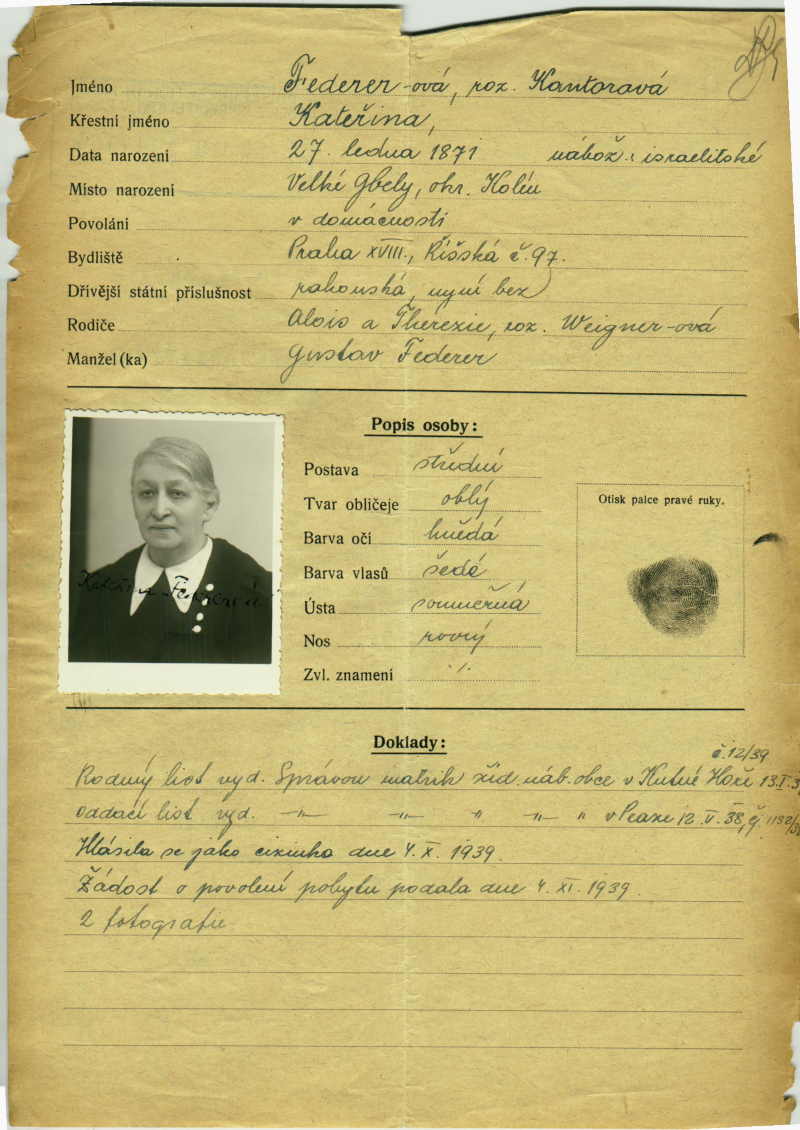 Jméno Federer-ová, roz. Kantorová
Křestní jméno Kateřina,
Data narození 27. ledna 1871 nábož. israelitské
Místo narození Velké Gbely, okr. Kolín
Povolání v domácnosti
Bydliště Praha XVIII., Říšská č. 97.
Dřívější státní příslušnost rakouská, nyní bez
Rodiče Alois a Thérézie, roz. Weigner-ová
Manžel (ka) Gustav Federer
Popis osoby:
Postava střední
Tvar obličeje oblý
Barva očí hnědá
Barva vlasů šedé
Ústa souměrná
Nos rovný
Zvl. znamení ·/.
Otisk palce pravé ruky.
Kateřina Federerová
Doklady:
č. 12/39
Rodný list vyd. Správou matrik žid. náb. obce v Kutné Hoře 13.I.3
oddací list vyd. –"– –"– " –"– " v Praze 12.V.38, čj. 1132/3
Hlásila se jako cizinka dne 4.X. 1939.
Žádost o povolení pobytu podala dne 4. XI. 1939.
2 fotografie